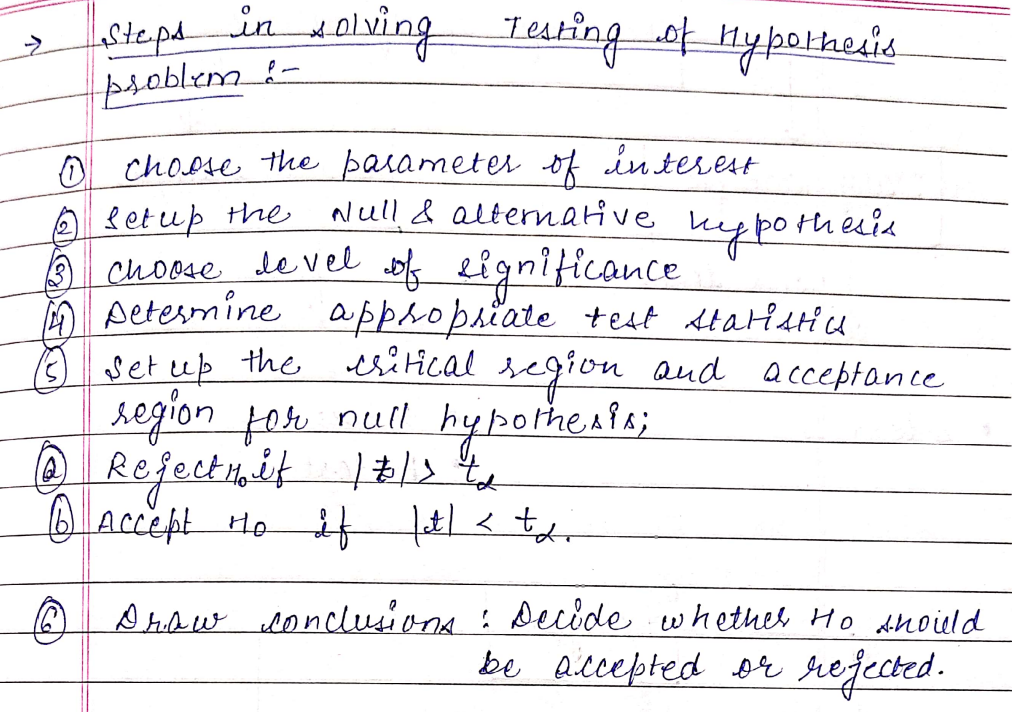 → Steps in solving Testing of Hypothesis
problem :-
① choose the parameter of interest
② Set up the Null & alternative hypothesis
③ choose level of significance
④ Determine appropriate test statistics
⑤ Set up the critical region and acceptance
region for null hypothesis;
ⓐ Reject H₀ if |t| > t_α
ⓑ Accept H₀ if |t| < t_α.
⑥ Draw conclusions : Decide whether H₀ should
be accepted or rejected.